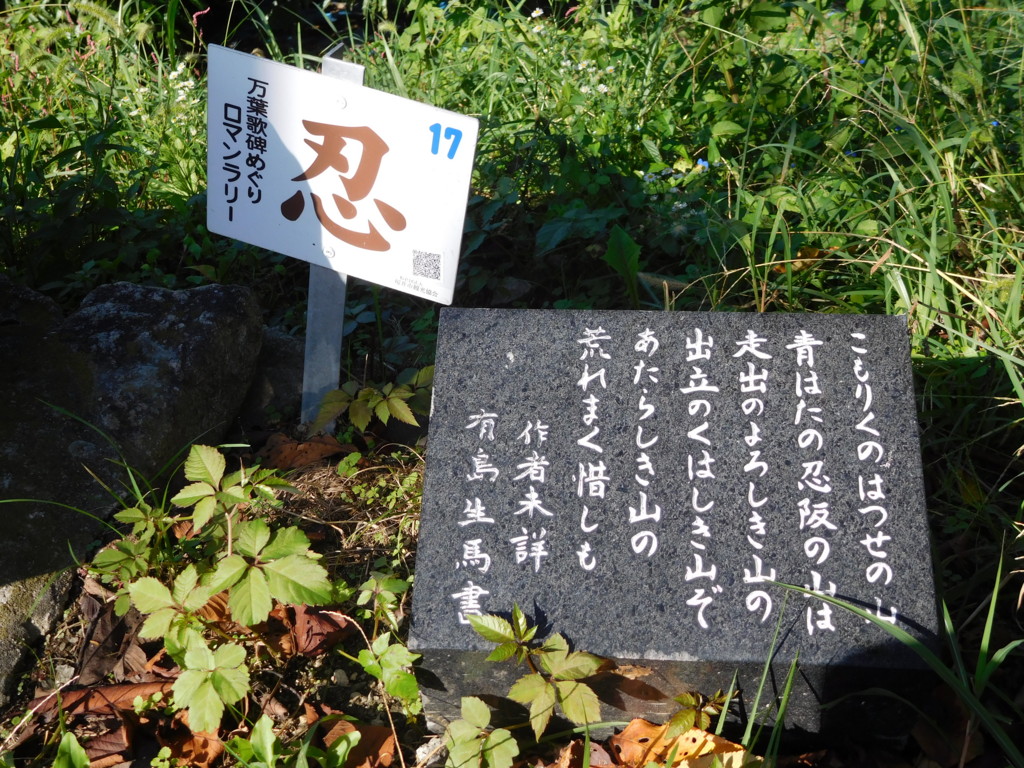 万葉歌碑めぐり
ロマンラリー
忍
17
こもりくのはつせの山
青はたの忍阪の山は
走出のよろしき山の
出立のくはしき山ぞ
あたらしき山の
荒れまく惜しも
作者未詳
有島生馬書